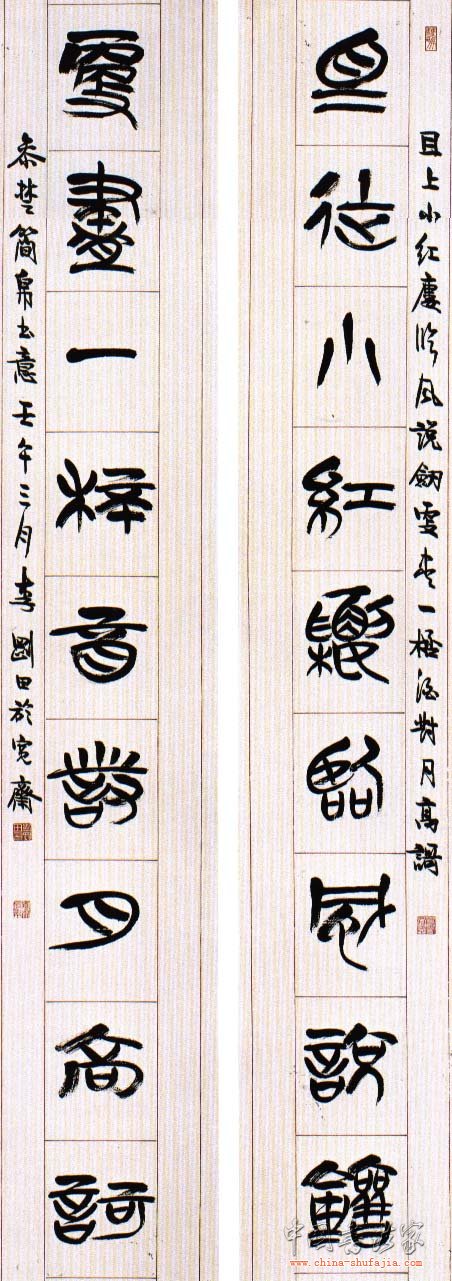 且上小紅廔臨風說劍更盡一桮酒對月高謌
且上小紅廔臨風說劍
更盡一桮酒對月高謌
參楚簡帛書意壬午三月李剛田於寬齋
中国书法家
www.china-shufajia.com